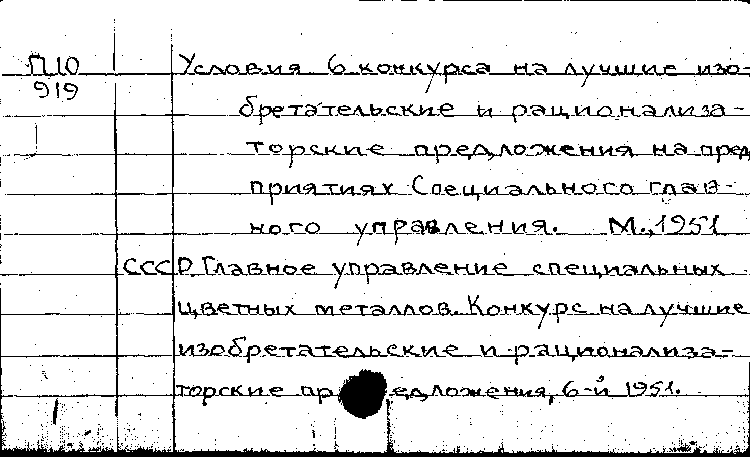 П10
919
Условия 6 конкурса на лучшие изо-
бретательские и рационализа-
торские предложения на пред
приятиях Специального глав-
ного управления. М., 1951
СССР. Главное управление специальных
цветных металлов. Конкурс на лучшие
изобретательские и рационализа-
торские предложения, 6-й 1951.